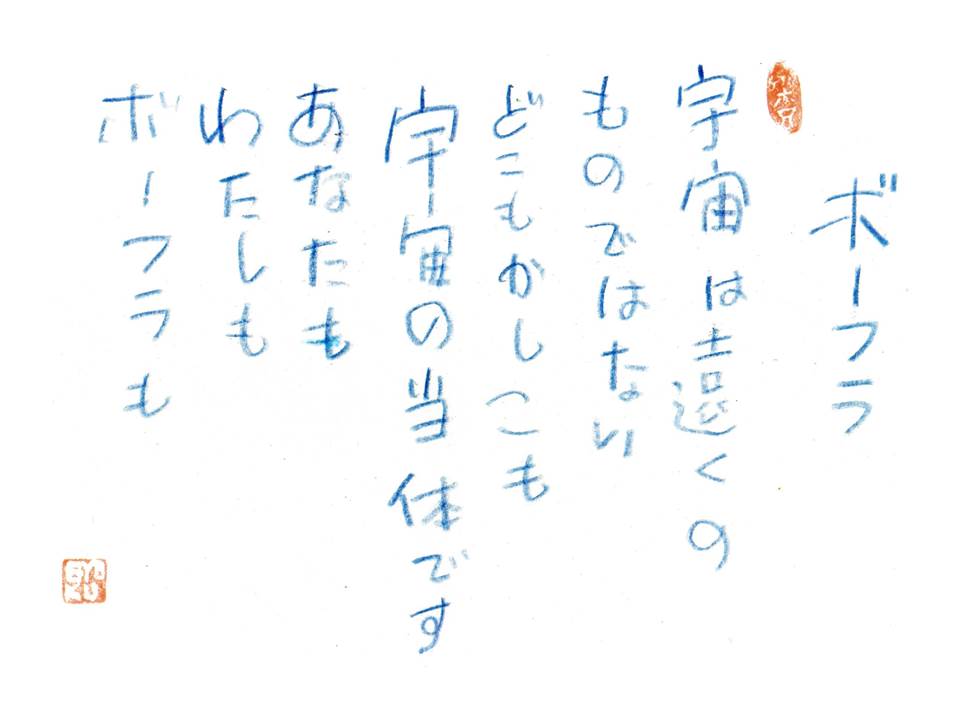 ボーフラ
宇宙は遠くの
ものではない
どこもかしこも
宇宙の当体です
あなたも
わたしも
ボーフラも